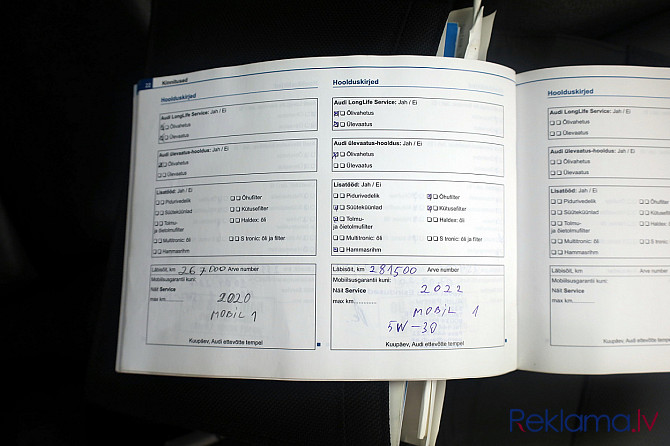 22 Kinnitused
Hoolduskirjed
Audi LongLife Service: Jah / Ei
Õlivahetus
Ülevaatus
Audi ülevaatus-hooldus: Jah / Ei
Õlivahetus
Ülevaatus
Lisatööd: Jah / Ei
Pidurivedelik
Õhufilter
Süüteküünlad
Kütusefilter
Tolmu-
ja õietolmufilter
Haldex: õli
Multitronic: õli
S tronic: õli ja filter
Hammasrihm
Läbisõit, km 267000 Arve number
Mobiilsusgarantii kuni:
Näit Service
max km..............
2020
MOBIL 1
Kuupäev, Audi ettevõtte tempel
Hoolduskirjed
Audi LongLife Service: Jah / Ei
Õlivahetus
Ülevaatus
Audi ülevaatus-hooldus: Jah / Ei
Õlivahetus
Ülevaatus
Lisatööd: Jah / Ei
Pidurivedelik
Õhufilter
Süüteküünlad
Kütusefilter
Tolmu-
ja õietolmufilter
Haldex: õli
Multitronic: õli
S tronic: õli ja filter
Hammasrihm
Läbisõit, km 281500 Arve number
Mobiilsusgarantii kuni:
Näit Service
max km..............
2022
MOBIL 1
5W-30
Kuupäev, Audi ettevõtte tempel
Hoolduskirjed
Audi LongLife Service: Jah / Ei
Õlivahetus
Ülevaatus
Audi ülevaatus-hooldus: Jah / Ei
Õlivahetus
Ülevaatus
Lisatööd: Jah / Ei
Pidurivedelik
Süüteküünlad
Tolmu-
ja õietolmufilter
Multitronic: õli
Hammasrihm
Läbisõit, km
Mobiilsusgarantii kuni:
Näit Service
max km..............
Kuupäev, Audi
Reklama.lv